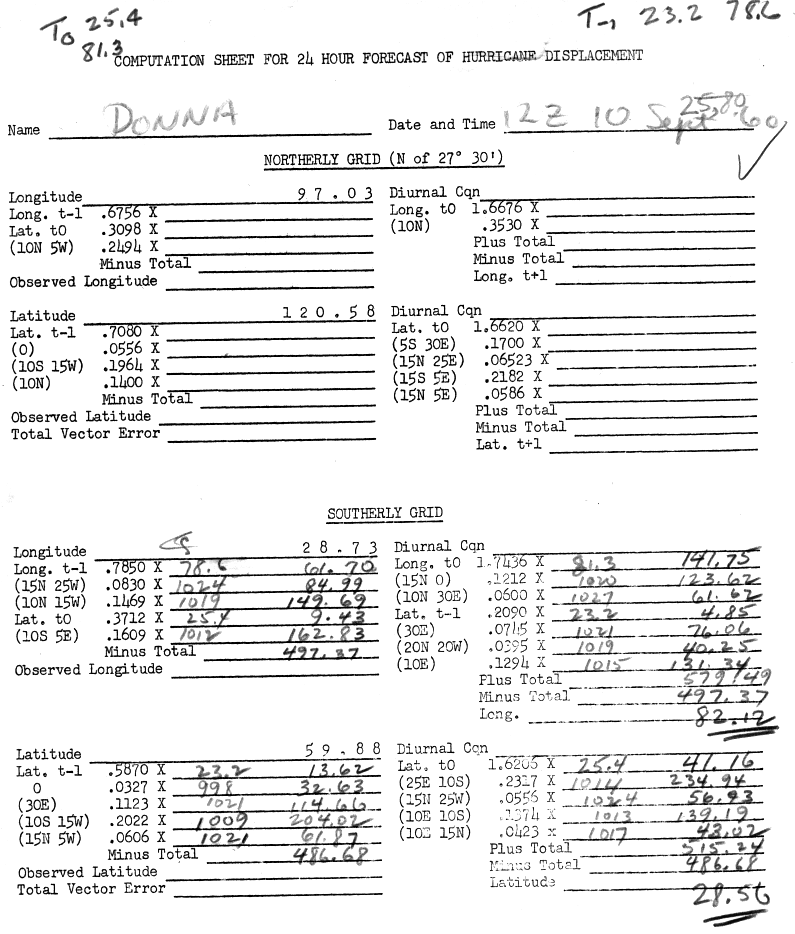 T0 25.4
81.3
T-1 23.2 78.6
COMPUTATION SHEET FOR 24 HOUR FORECAST OF HURRICANE DISPLACEMENT
25.80
Name DONNA Date and Time 12Z 10 Sept 60
NORTHERLY GRID (N of 27° 30')
Longitude 97.03 Diurnal Cqn
Long. t-1 .6756 X Long. t0 1.6676 X
Lat. t0 .3098 X (10N) .3530 X
(10N 5W) .2494 X Plus Total
Minus Total Minus Total
Observed Longitude Long. t+1
Latitude 120.58 Diurnal Cqn
Lat. t-1 .7080 X Lat. t0 1.6620 X
(0) .0556 X (5S 30E) .1700 X
(10S 15W) .1964 X (15N 25E) .06523 X
(10N) .1400 X (15S 5E) .2182 X
Minus Total (15N 5E) .0586 X
Observed Latitude Plus Total
Total Vector Error Minus Total
Lat. t+1
SOUTHERLY GRID
Longitude 28.73 Diurnal Cqn
Long. t-1 .7850 X 78.6 61.70 Long. t0 1.7436 X 81.3 141.75
(15N 25W) .0830 X 1024 84.99 (15N 0) .1212 X 1020 123.62
(10N 15W) .1469 X 1019 149.69 (10N 30E) .0600 X 1027 61.62
Lat. t0 .3712 X 25.4 9.43 Lat. t-1 .2090 X 23.2 4.85
(10S 5E) .1609 X 1012 162.83 (30E) .0745 X 1021 76.06
Minus Total 497.37 (20N 20W) .0395 X 1019 40.25
Observed Longitude (10E) .1294 X 1015 131.34
Plus Total 579.49
Minus Total 497.37
Long. 82.12
Latitude 59.88 Diurnal Cqn
Lat. t-1 .5870 X 23.2 13.62 Lat. t0 1.6206 X 25.4 41.16
0 .0327 X 998 32.63 (25E 10S) .2317 X 1014 234.94
(30E) .1123 X 1021 114.66 (15N 25W) .0556 X 1024 56.93
(10S 15W) .2022 X 1009 204.02 (10E 10S) .1374 X 1013 139.19
(15N 5W) .0606 X 1021 61.87 (10E 15N) .0423 X 1017 43.02
Minus Total 486.68 Plus Total 515.24
Observed Latitude Minus Total 486.68
Total Vector Error Latitude 28.56